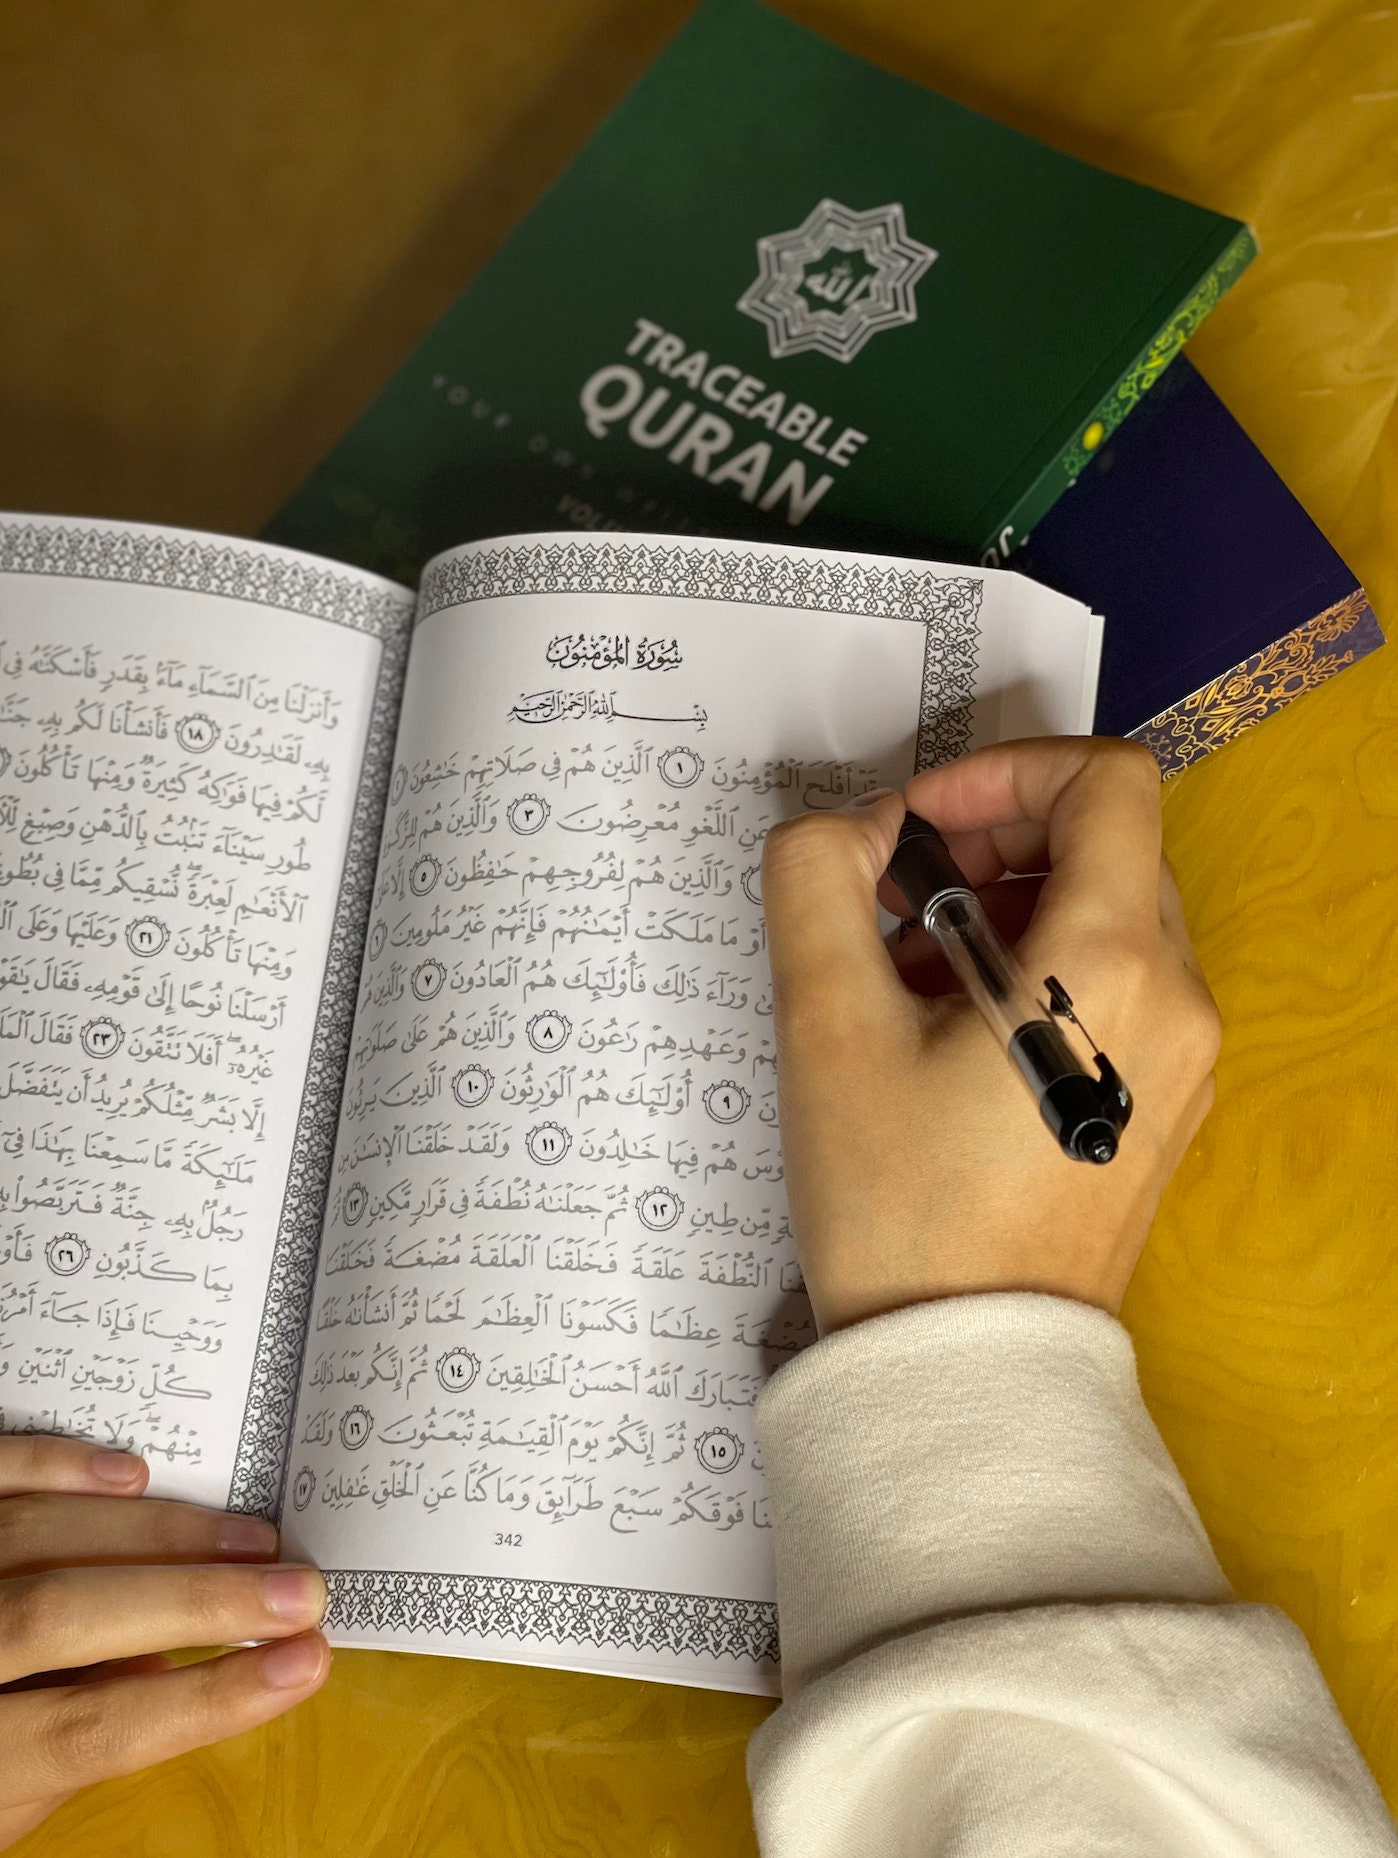 الله
TRACEABLE
QURAN
YOUR OWN
سُورَةُ المُؤْمِنُونَ
بِسْمِ ٱللَّهِ ٱلرَّحْمَٰنِ ٱلرَّحِيمِ
قَدْ أَفْلَحَ ٱلْمُؤْمِنُونَ ١ ٱلَّذِينَ هُمْ فِي صَلَاتِهِمْ خَٰشِعُونَ ٢
عَنِ ٱللَّغْوِ مُعْرِضُونَ ٣ وَٱلَّذِينَ هُمْ لِلزَّكَوٰةِ
وَٱلَّذِينَ هُمْ لِفُرُوجِهِمْ حَٰفِظُونَ ٥ إِلَّا عَلَىٰ
أَوْ مَا مَلَكَتْ أَيْمَٰنُهُمْ فَإِنَّهُمْ غَيْرُ مَلُومِينَ ٦
وَرَآءَ ذَٰلِكَ فَأُوْلَٰٓئِكَ هُمُ ٱلْعَادُونَ ٧ وَٱلَّذِينَ هُمْ
وَعَهْدِهِمْ رَٰعُونَ ٨ وَٱلَّذِينَ هُمْ عَلَىٰ صَلَوَٰتِهِمْ
٩ أُوْلَٰٓئِكَ هُمُ ٱلْوَٰرِثُونَ ١٠ ٱلَّذِينَ يَرِثُونَ
هُمْ فِيهَا خَٰلِدُونَ ١١ وَلَقَدْ خَلَقْنَا ٱلْإِنسَٰنَ مِن
مِّن طِينٍ ١٢ ثُمَّ جَعَلْنَٰهُ نُطْفَةً فِي قَرَارٍ مَّكِينٍ ١٣
ٱلنُّطْفَةَ عَلَقَةً فَخَلَقْنَا ٱلْعَلَقَةَ مُضْغَةً فَخَلَقْنَا
عِظَٰمًا فَكَسَوْنَا ٱلْعِظَٰمَ لَحْمًا ثُمَّ أَنشَأْنَٰهُ خَلْقًا
فَتَبَارَكَ ٱللَّهُ أَحْسَنُ ٱلْخَٰلِقِينَ ١٤ ثُمَّ إِنَّكُم بَعْدَ ذَٰلِكَ
١٥ ثُمَّ إِنَّكُمْ يَوْمَ ٱلْقِيَٰمَةِ تُبْعَثُونَ ١٦ وَلَقَدْ
فَوْقَكُمْ سَبْعَ طَرَآئِقَ وَمَا كُنَّا عَنِ ٱلْخَلْقِ غَٰفِلِينَ ١٧
342
وَأَنزَلْنَا مِنَ ٱلسَّمَآءِ مَآءًۢ بِقَدَرٍ فَأَسْكَنَّٰهُ فِي
بِهِۦ لَقَٰدِرُونَ ١٨ فَأَنشَأْنَا لَكُم بِهِۦ جَنَّٰتٍ
لَّكُمْ فِيهَا فَوَٰكِهُ كَثِيرَةٌ وَمِنْهَا تَأْكُلُونَ
طُورِ سَيْنَآءَ تَنۢبُتُ بِٱلدُّهْنِ وَصِبْغٍ
ٱلْأَنْعَٰمِ لَعِبْرَةً نُّسْقِيكُم مِّمَّا فِي بُطُونِهَا
وَمِنْهَا تَأْكُلُونَ ٢١ وَعَلَيْهَا وَعَلَى
أَرْسَلْنَا نُوحًا إِلَىٰ قَوْمِهِۦ فَقَالَ يَٰقَوْمِ
غَيْرُهُۥٓ أَفَلَا تَتَّقُونَ ٢٣ فَقَالَ
إِلَّا بَشَرٌ مِّثْلُكُمْ يُرِيدُ أَن يَتَفَضَّلَ
مَلَٰٓئِكَةً مَّا سَمِعْنَا بِهَٰذَا فِيٓ
رَجُلٌۢ بِهِۦ جِنَّةٌ فَتَرَبَّصُواْ
بِمَا كَذَّبُونِ ٢٦
وَوَحْيِنَا فَإِذَا جَآءَ أَمْرُنَا
كُلٍّ زَوْجَيْنِ ٱثْنَيْنِ
مِنْهُمْ وَلَا تُخَٰطِبْنِي